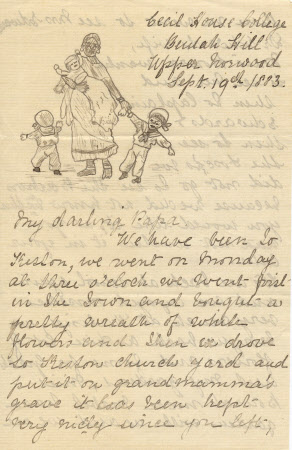 Cecil House College
Beulah Hill
Upper Norwood
Sept. 19th 1883.
My darling Papa
We have been to
Keston, we went on Monday
at three o'clock we went first
in the Town and bought a
pretty wreath of white
flowers and then we drove
to Keston church yard and
put it on grandmamma's
grave it has been kept
very nicely since you left,